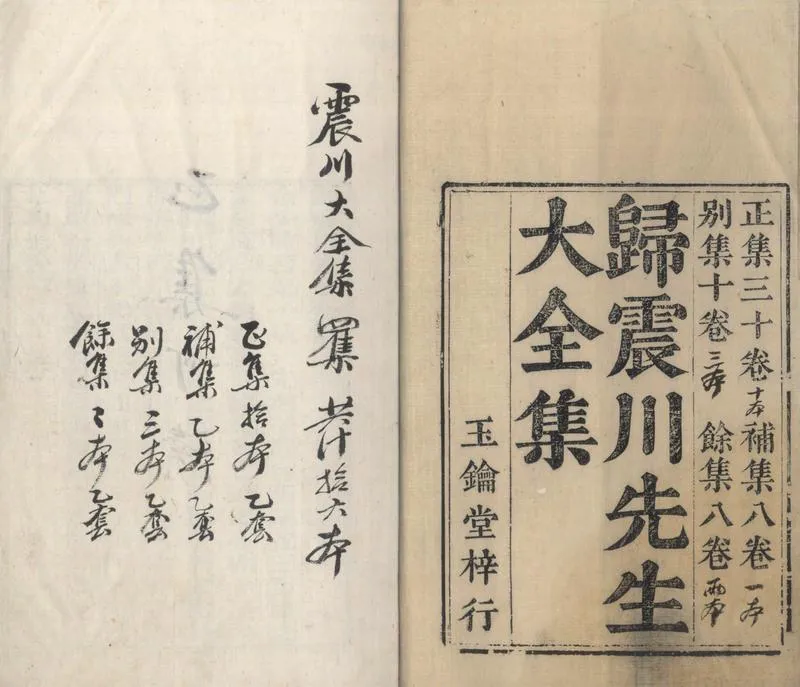 正集三十卷十本補集八卷一本
别集十卷三本餘集八卷兩本
歸震川先生
大全集
玉鑰堂梓行
震川大全集四集共计拾六本
正集拾本乙套
補集乙本乙套
别集三本乙套
餘集二本乙套